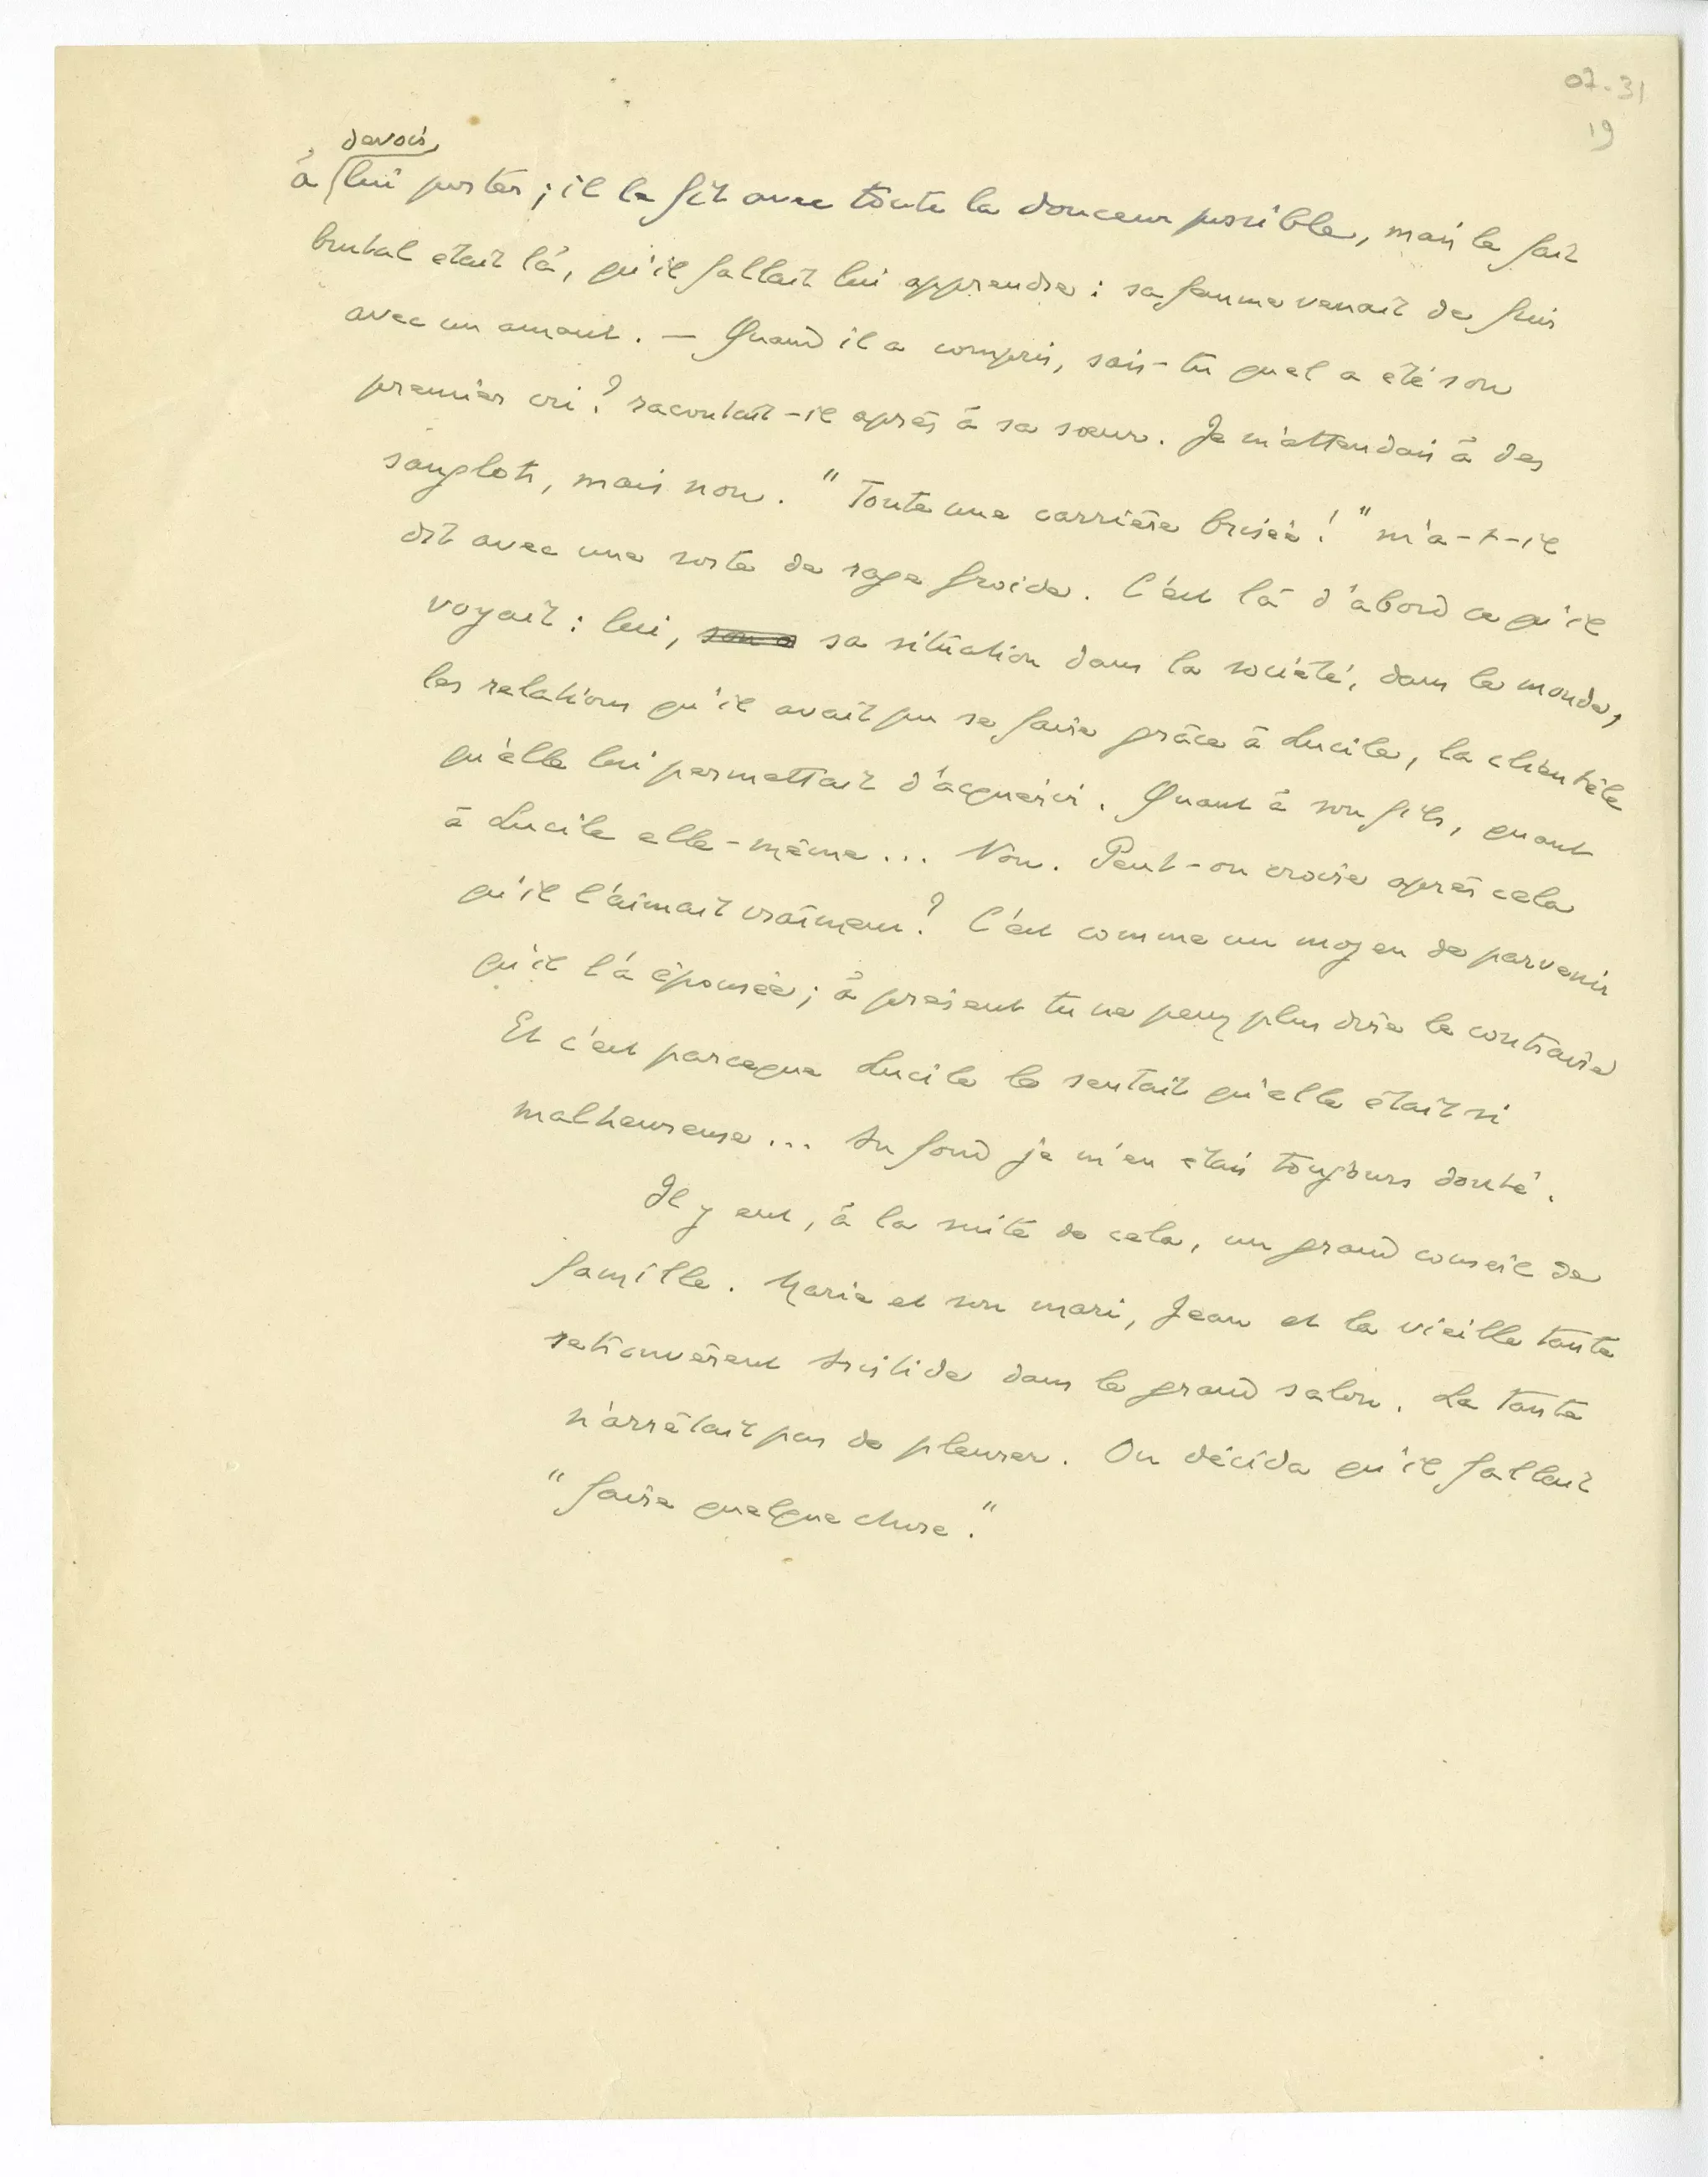 07-31
19
devoir
à lui porter ; il le fit avec toute la douceur possible, mais le fait
brutal était là, qu'il fallait lui apprendre : sa femme venait de fuir
avec un amant. — Quand il a compris, sais-tu quel a été son
premier cri ? racontait-il après à sa sœur. Je m'attendais à des
sanglots, mais non. "Toute une carrière brisée !" m'a-t-il
dit avec une sorte de rage froide. C'est là d'abord ce qu'il
voyait : lui, sa situation dans la société, dans le monde,
les relations qu'il avait pu se faire grâce à Lucile, la clientèle
qu'elle lui permettait d'acquérir. Quant à son fils, quant
à Lucile elle-même... Non. Peut-on croire après cela
qu'il l'aimait vraiment ? C'est comme un moyen de parvenir
qu'il l'a épousée ; à présent tu ne peux plus dire le contraire
Et c'est parceque Lucile le sentait qu'elle était si
malheureuse... Au fond je m'en étais toujours douté.
Il y eut, à la suite de cela, un grand conseil de
famille. Marie et son mari, Jean et la vieille tante
retrouvèrent Aristide dans le grand salon. La tante
n'arrêtait pas de pleurer. On décida qu'il fallait
"faire quelque chose."